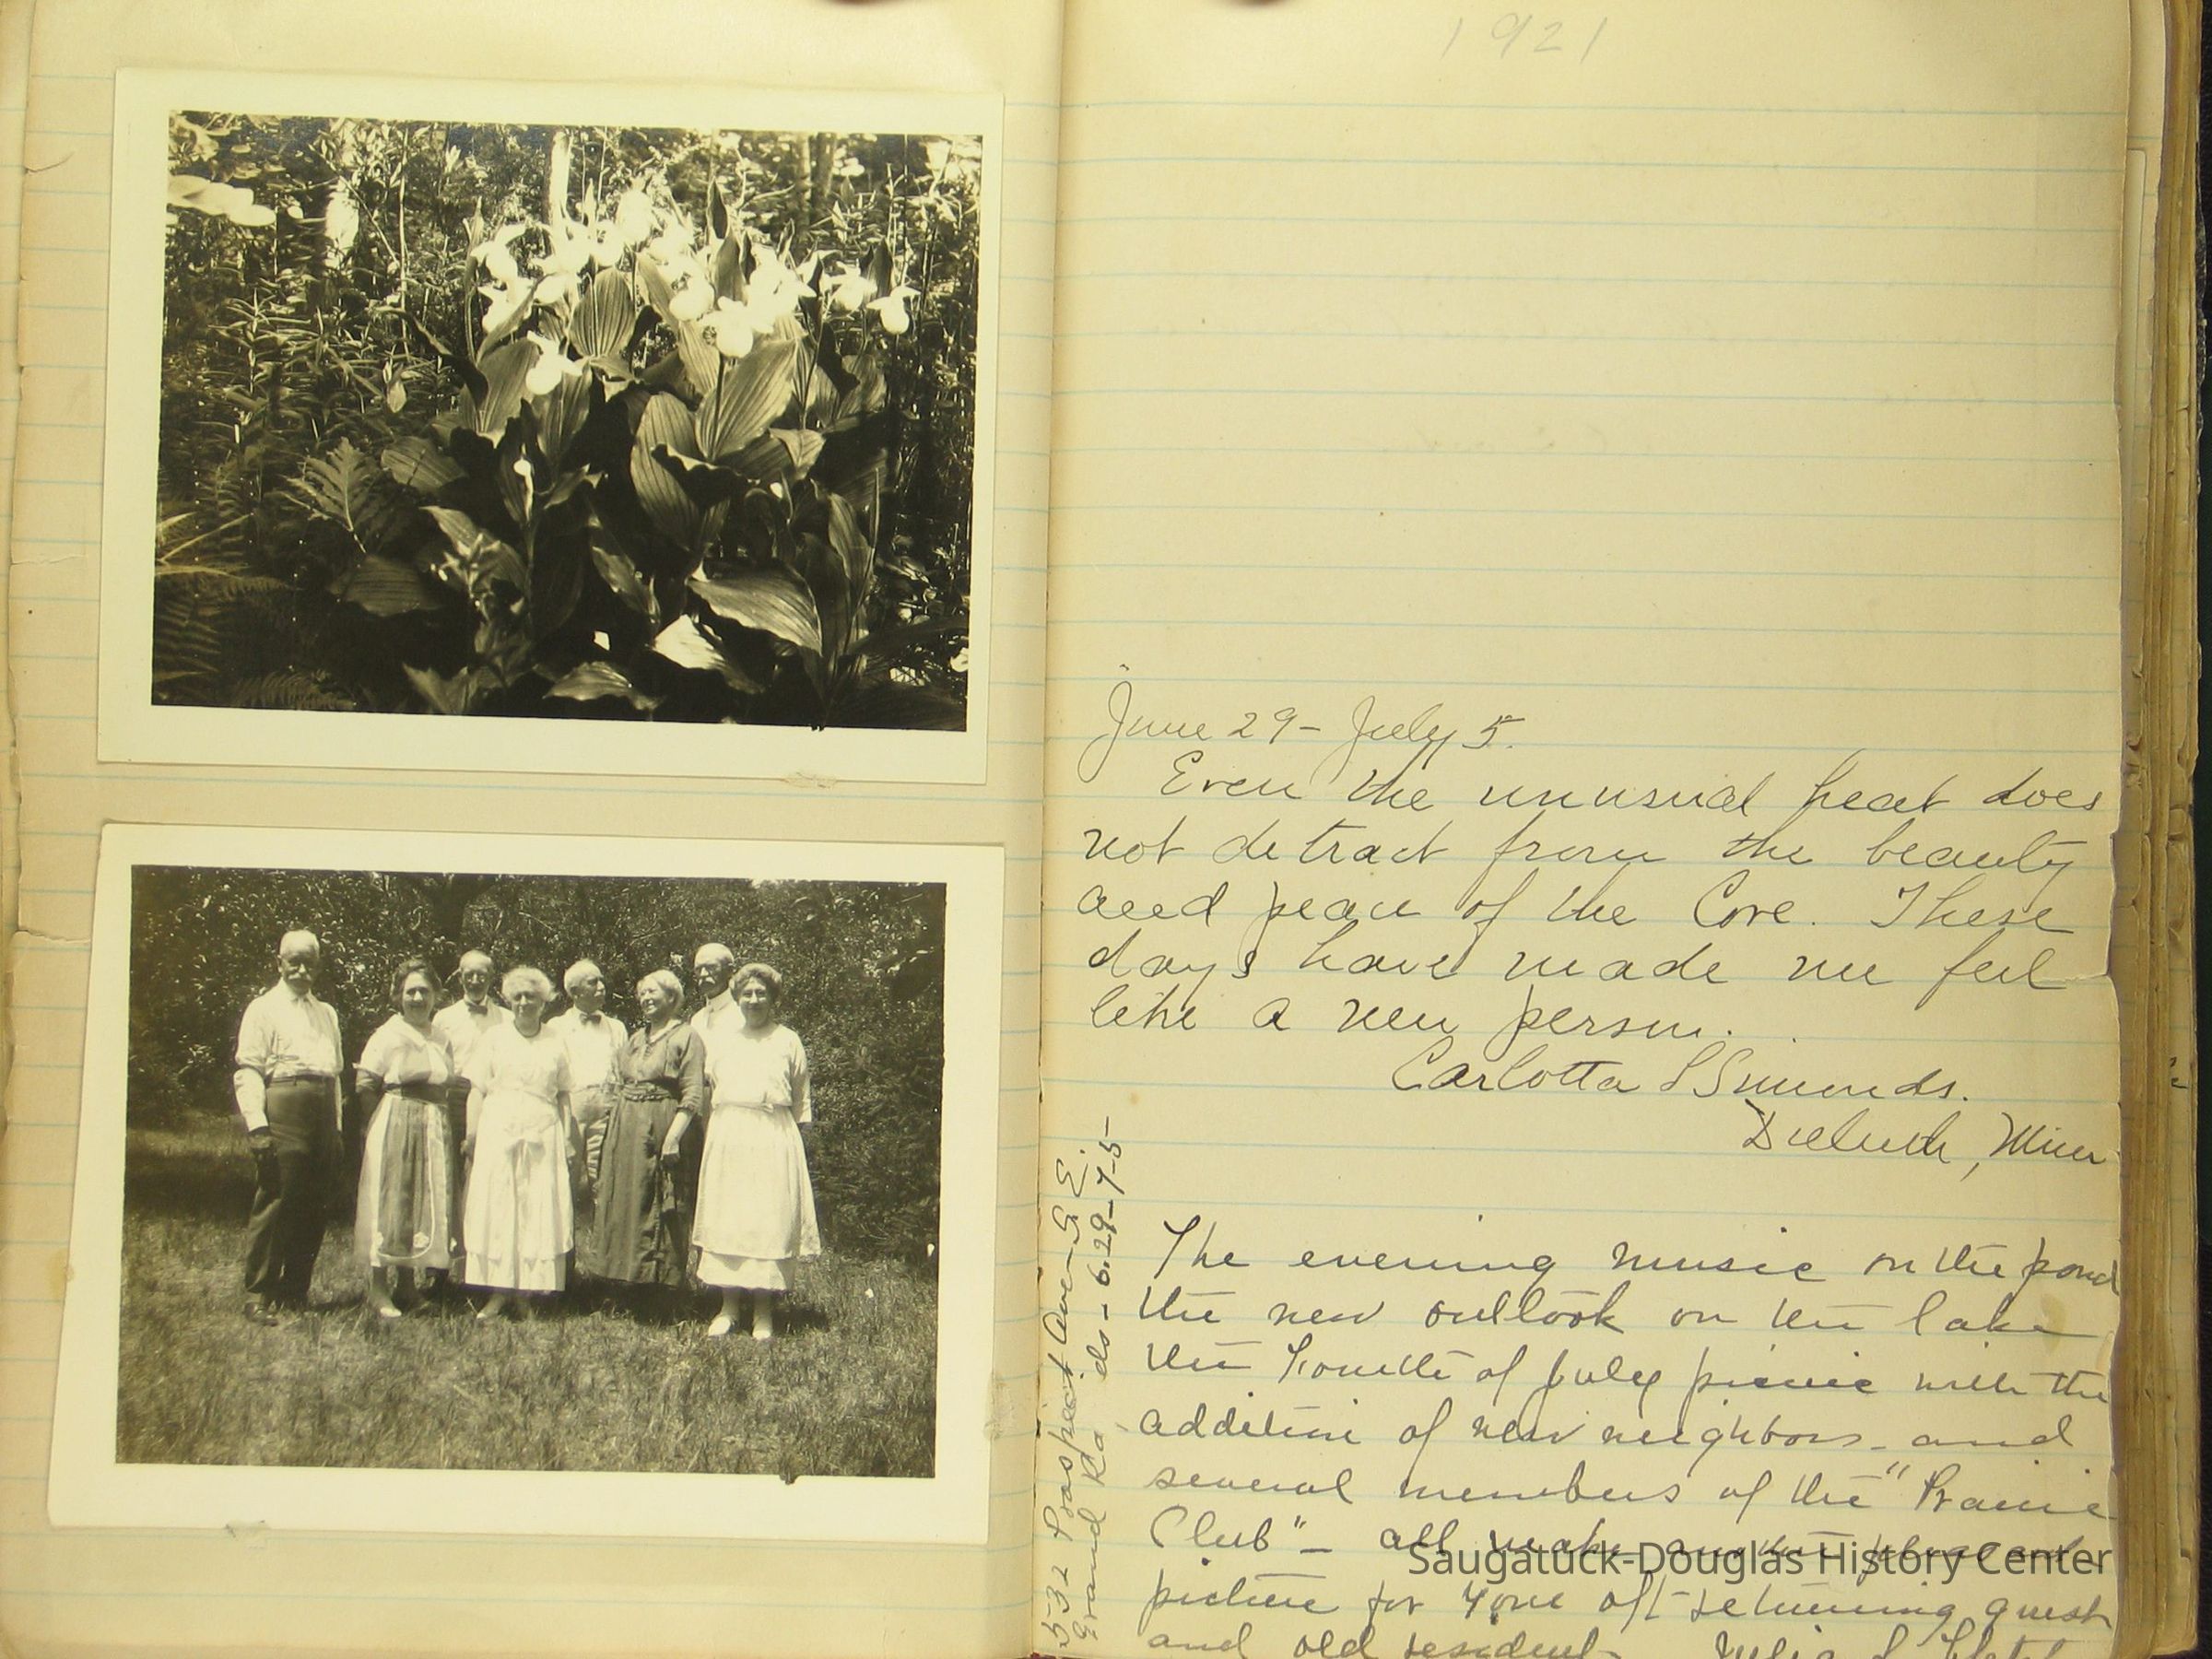 1921
June 29 - July 5.
Even the unusual heat does
not detract from the beauty
and peace of the Cove. These
days have made me feel
like a new person.
Carlotta S Simonds.
Duluth, Minn
The evening music on the pond
the new outlook on the lake
the Fourth of July picnic with the
addition of new neighbors - and
several members of the "Prairie
Club" - all make another pleasant
picture for your oft-returning guest
and old resident Julia L
532 Prospect Ave - S. E.
Grand Ra ds - 6.29 - 7-5-
Saugatuck-Douglas History Center